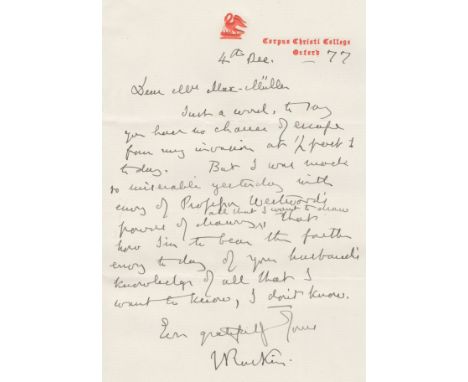 Corpus Christi College
Oxford
4th Dec. — 77
Dear Mrs Max-Müller
Just a word, to say
you have no chance of escape
from my invasion at ½ past 1
to day. But I was made
so miserable yesterday with
envy of Professor Westwood's
all that I want to draw
power of drawing, that
how I'm to bear the farther
envy to day of your husband's
knowledge of all that I
want to know, I don't know.
Ever gratefully Yours
J Ruskin.